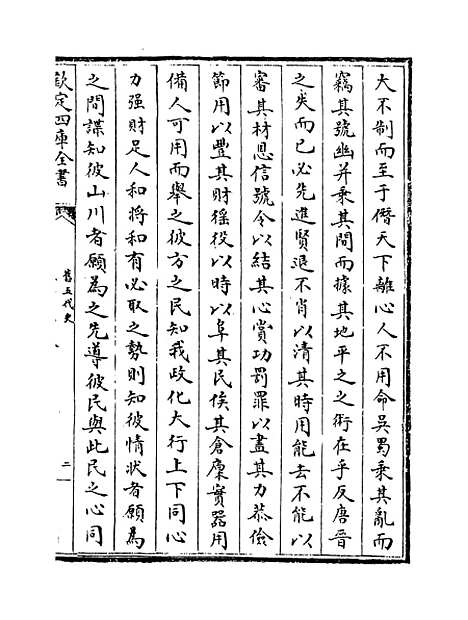 大不制而至于僭天下離心人不用命吳蜀乘其亂而
竊其號幽并乘其間而據其地平之之術在乎反唐晉
之失而已必先進賢退不肖以清其時用能去不能以
審其材恩信號令以結其心賞功罰罪以盡其力恭儉
節用以豐其財徭役以時以阜其民俟其倉廩實器用
備人可用而舉之彼方之民知我政化大行上下同心
力强財足人和將和有必取之勢則知彼情狀者願為
之間諜知彼山川者願為之先導彼民與此民之心同
欽定四庫全書
舊五代史
二